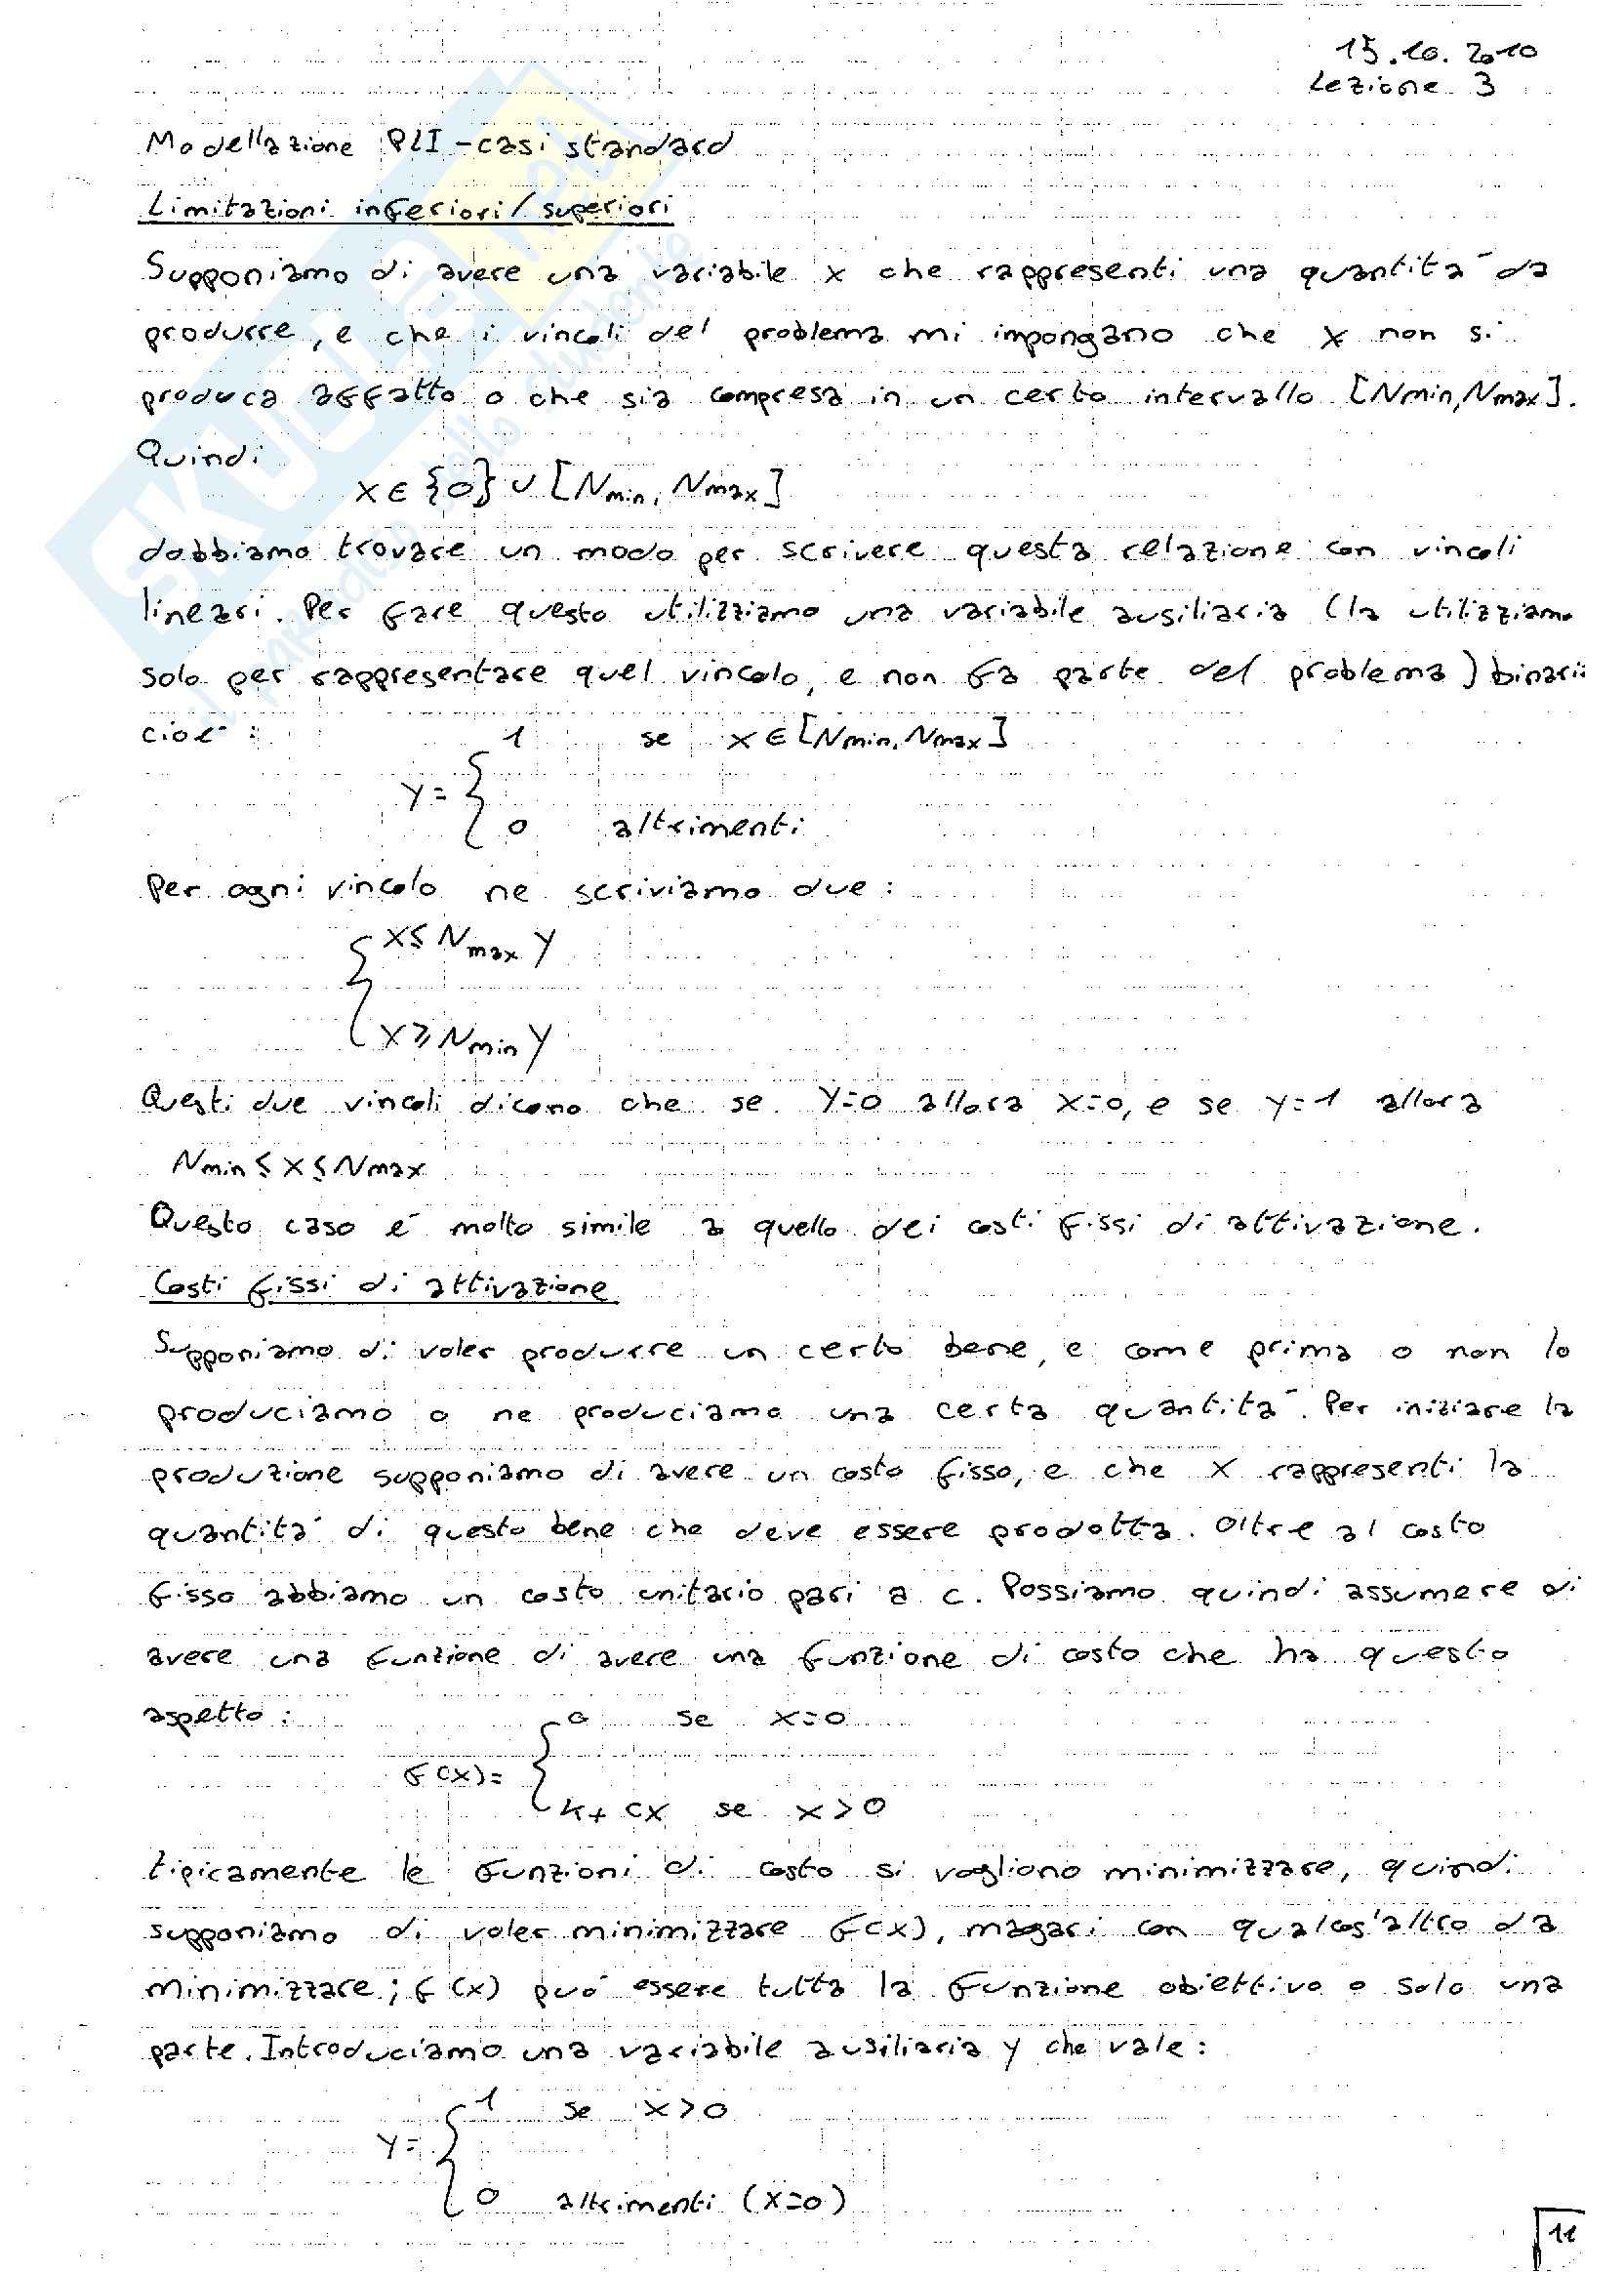 15.10.2010
Lezione 3
Modellazione PLI - casi standard
Limitazioni inferiori/superiori
Supponiamo di avere una variabile x che rappresenti una quantità da
produrre, e che i vincoli del problema mi impongano che x non si
produca affatto o che sia compresa in un certo intervallo [Nmin, Nmax].
Quindi
x ∈ {0} ∪ [Nmin, Nmax]
dobbiamo trovare un modo per scrivere questa relazione con vincoli
lineari. Per fare questo utilizziamo una variabile ausiliaria (la utilizziamo
solo per rappresentare quel vincolo, e non fa parte del problema) binaria
cioè:
1 se x ∈ [Nmin, Nmax]
y = {
0 altrimenti
Per ogni vincolo ne scriviamo due:
{ x ≤ Nmax y
x ≥ Nmin y
Questi due vincoli dicono che se y=0 allora x=0, e se y=1 allora
Nmin ≤ x ≤ Nmax
Questo caso è molto simile a quello dei costi fissi di attivazione.
Costi fissi di attivazione
Supponiamo di voler produrre un certo bene, e come prima o non lo
produciamo o ne produciamo una certa quantità. Per iniziare la
produzione supponiamo di avere un costo fisso, e che x rappresenti la
quantità di questo bene che deve essere prodotta. Oltre al costo
fisso abbiamo un costo unitario pari a c. Possiamo quindi assumere di
avere una funzione di avere una funzione di costo che ha questo
aspetto:
0 se x=0
f(x) = {
k + cx se x > 0
tipicamente le funzioni di costo si vogliono minimizzare, quindi
supponiamo di voler minimizzare f(x), magari con qualcos'altro da
minimizzare; f(x) può essere tutta la funzione obiettivo o solo una
parte. Introduciamo una variabile ausiliaria y che vale:
1 se x > 0
y = {
0 altrimenti (x=0)
11